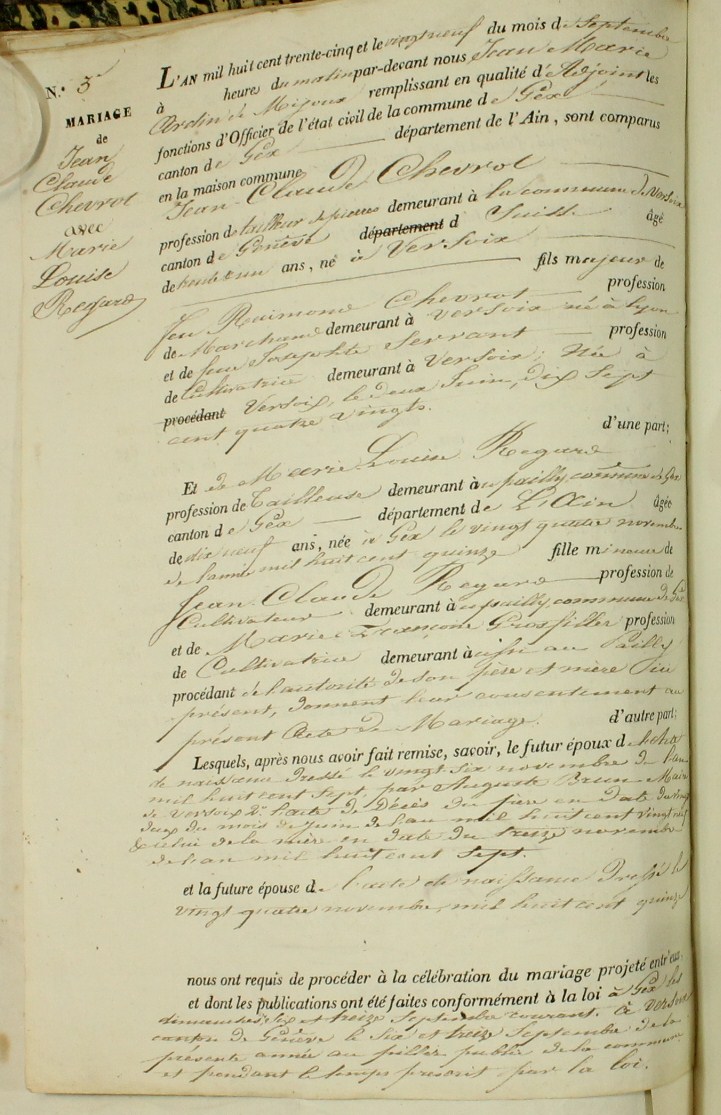 N.º 3
MARIAGE
de
Jean
Claude
Chevrot
avec
Marie
Louise
Regard
L'AN mil huit cent trente-cinq et le vingt neuf du mois de Septembre
à heure du matin par-devant nous Jean Marie
de Mijoux remplissant en qualité d'Adjoint les
fonctions d'Officier de l'état civil de la commune de Gex
canton de Gex département de l'Ain, sont comparus
en la maison commune
Jean-Claude Chevrot
profession de tailleur de pierres demeurant à la commune de Versoix
canton de Genève département d Suisse âgé
de ans, né à Versoix
fils majeur de
feu Raimond Chevrot profession
de Marchand demeurant à Versoix né à Lyon
et de feue Josephte Servant profession
de Cultivatrice demeurant à Versoix; Née à
procédant Versoix, le deux Juin, dix Sept
cent quatre vingts.
d'une part;
Et de Marie Louise Regard
profession de Tailleuse demeurant au pailly, commune de Gex
canton de Gex département de L'Ain âgée
de dix neuf ans, née à Gex le vingt quatre novembre
de l'année mil huit cent quinze fille mineure de
Jean-Claude Regard profession de
Cultivateur demeurant au pailly commune de Gex
et de Marie Françoise Grosfiller profession
de Cultivatrice demeurant à au Pailly
procédant de l'autorité de son père et mère ici
présent, donnent leur consentement au
présent Acte de Mariage.
d'autre part;
Lesquels, après nous avoir fait remise, savoir, le futur époux de l'acte
de naissance dressé le vingt six novembre de l'an
mil huit cent sept, par Auguste Brun Maire
de Versoix 2º l'acte de Décès du père en date du vingt
deux du mois de Juin de l'an mil huit cent vingt
celui de la mère en date du treize novembre
de l'an mil huit cent Sept.
et la future épouse de l'acte de naissance Dressé le
vingt quatre novembre, mil huit cent quinze
nous ont requis de procéder à la célébration du mariage projeté entr'eux,
et dont les publications ont été faites conformément à la loi à Gex les
dimanches six et treize Septembre courant. à Versoix
canton de Genève le Six et treize Septembre de la
présente année au pillier public de la commune
et pendant le temps prescrit par la loi.